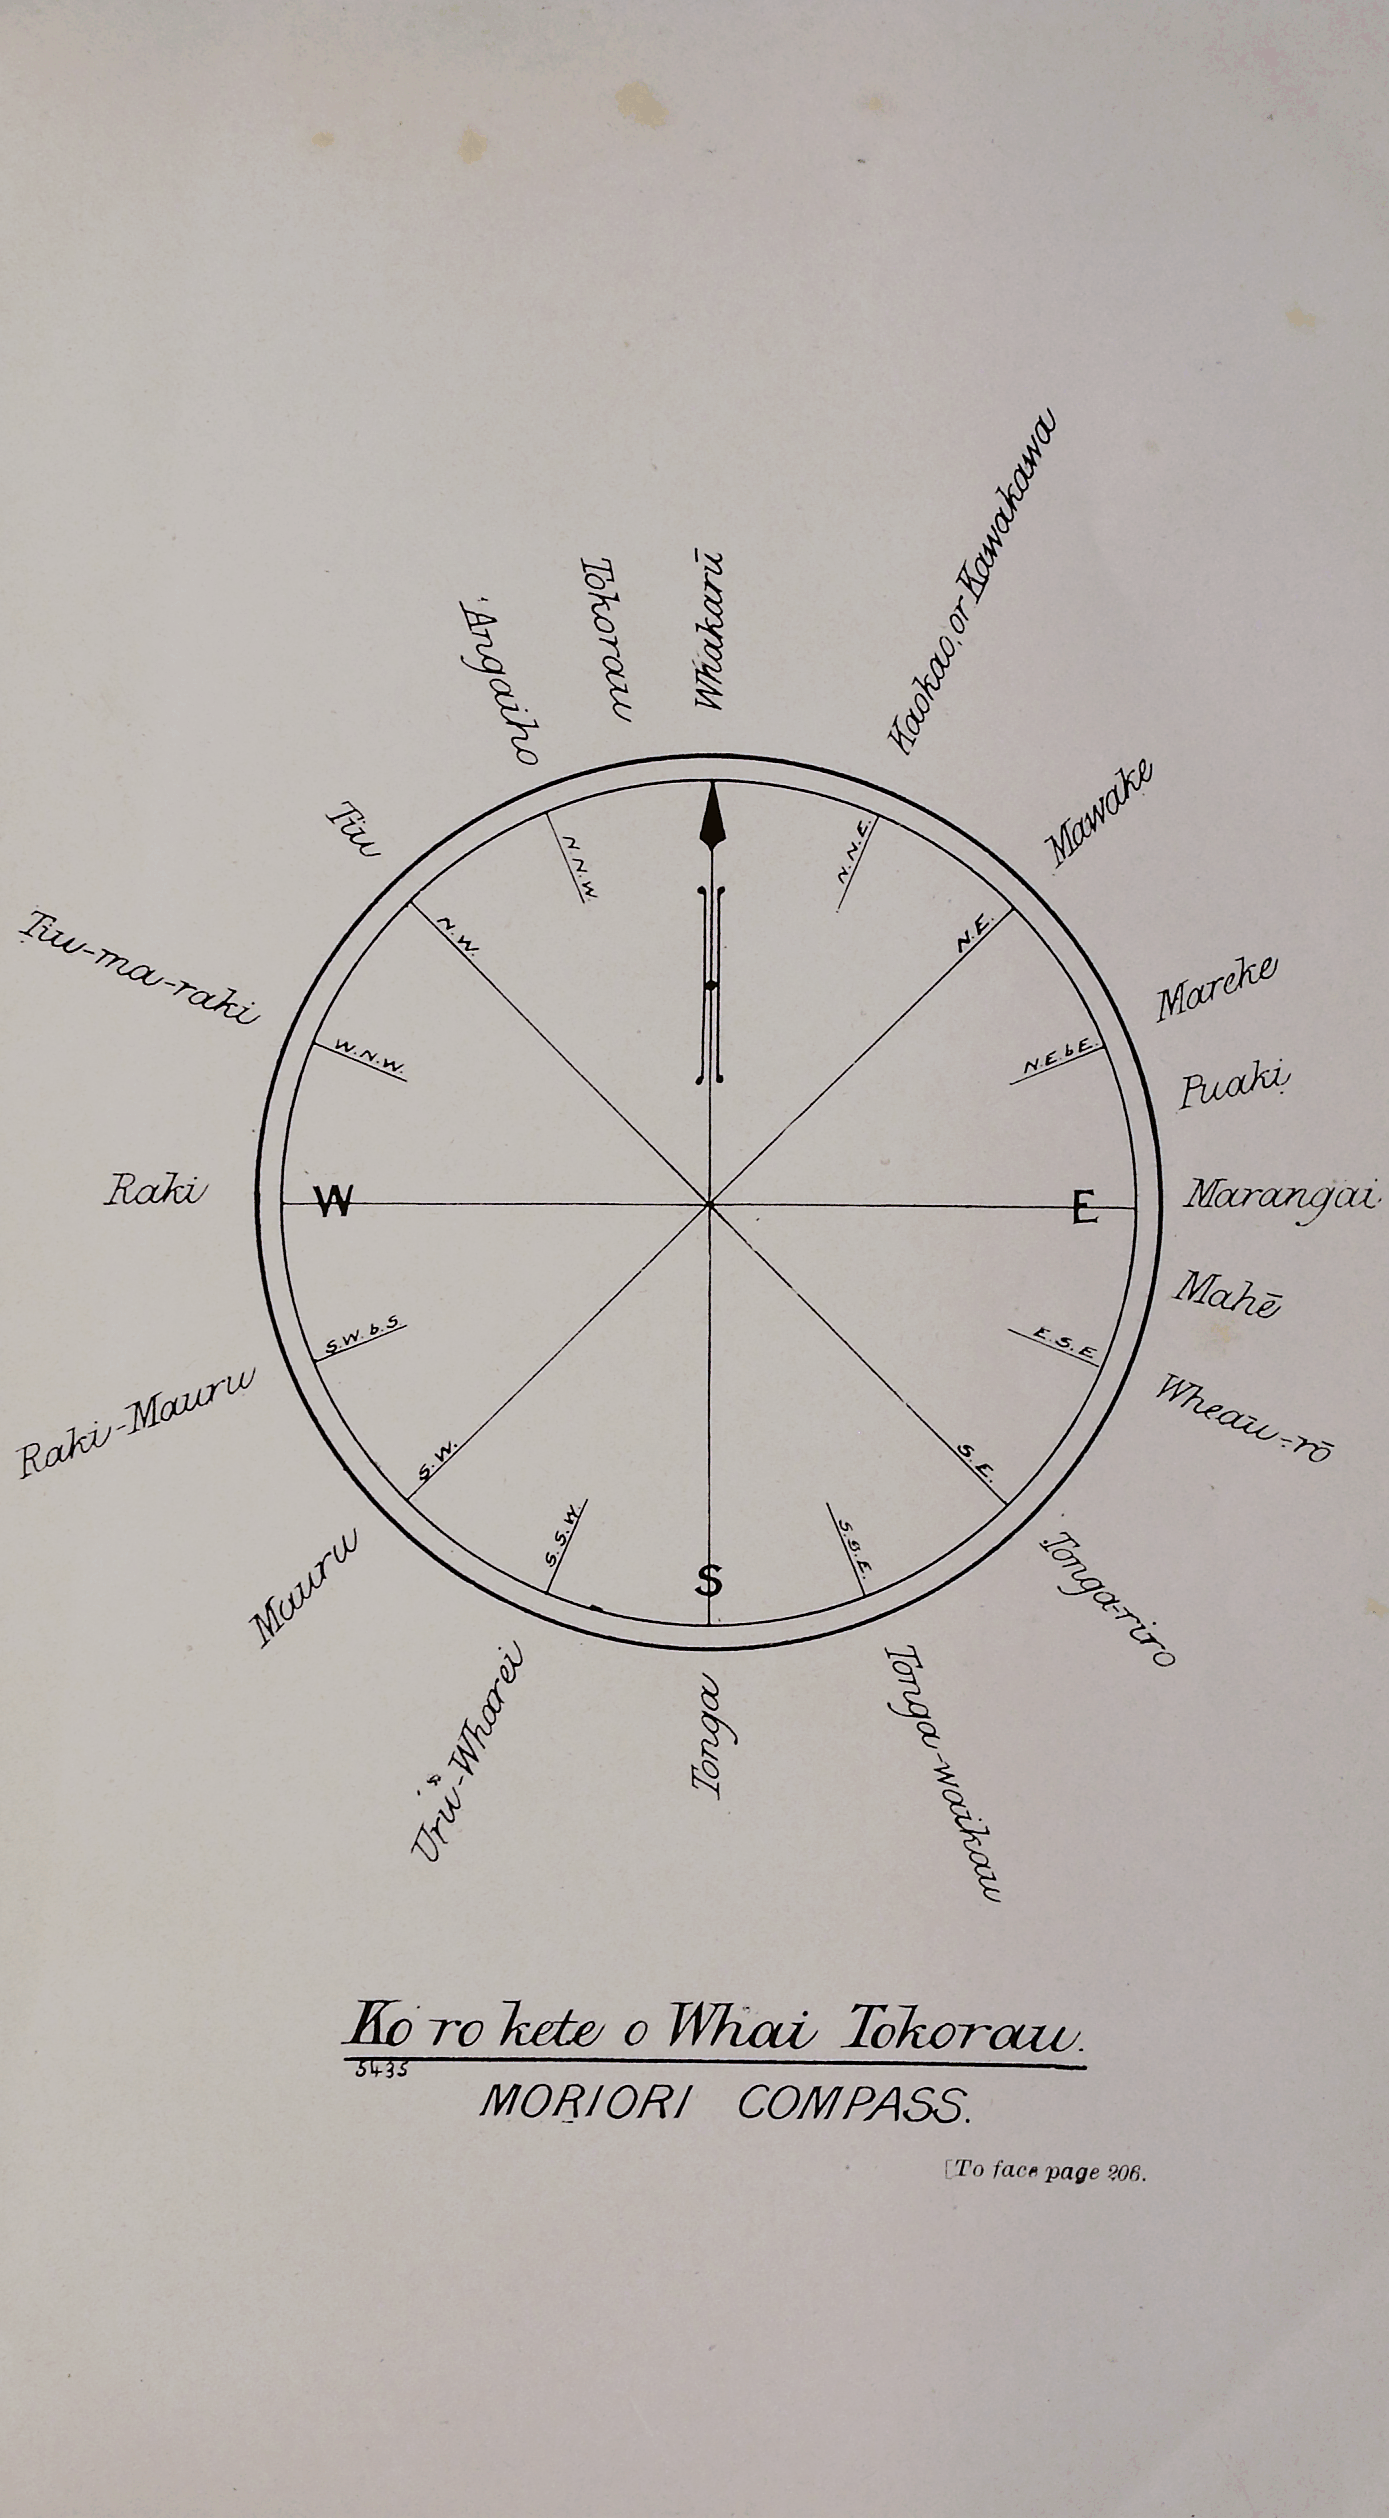 Whakarū
Kaokao, or Kawakawa
Mawake
Mareke
Puaki
Marangai
Mahē
Wheāu-rō
Tonga-riro
Tonga-waikau
Tonga
Urū-Wharei
Mauru
Raki-Mauru
Raki
Tiu-ma-raki
Tiu
'Angaiho
Tokorau
N.N.E.
N.E.
N.E.bE.
E
E.S.E
S.E.
S.S.E.
S
S.S.W.
S.W.
S.W.b.S
W
W.N.W.
N.W.
N.N.W.
Ko ro kete o Whai Tokorau.
5435
MORIORI COMPASS.
[To face page 206.